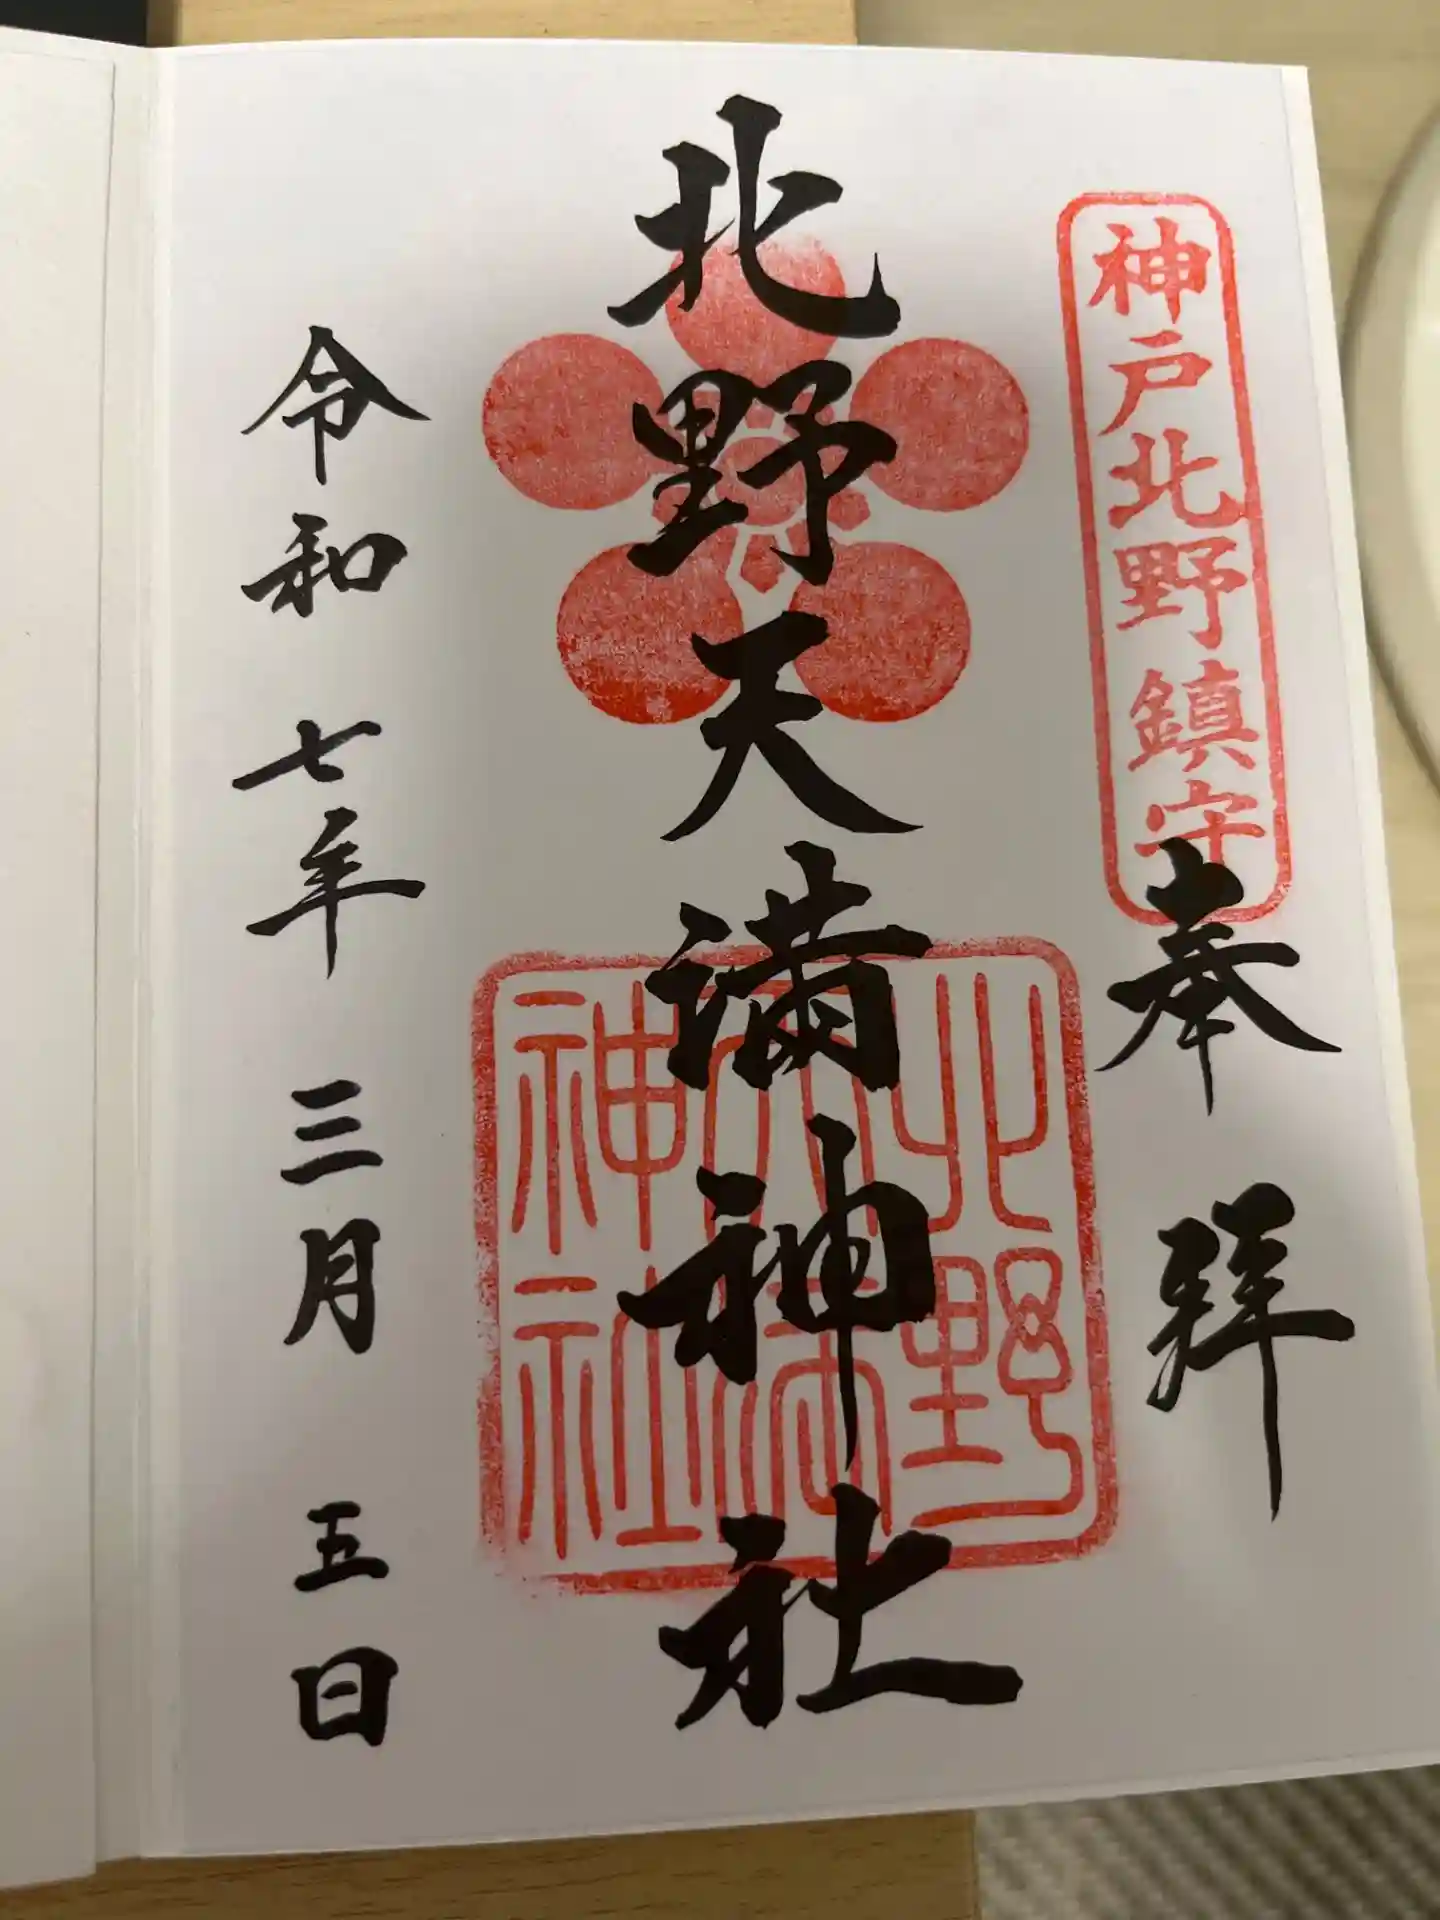 神戸北野鎮守
奉拝
北野天満神社
北野
天満
神社
令和七年三月五日